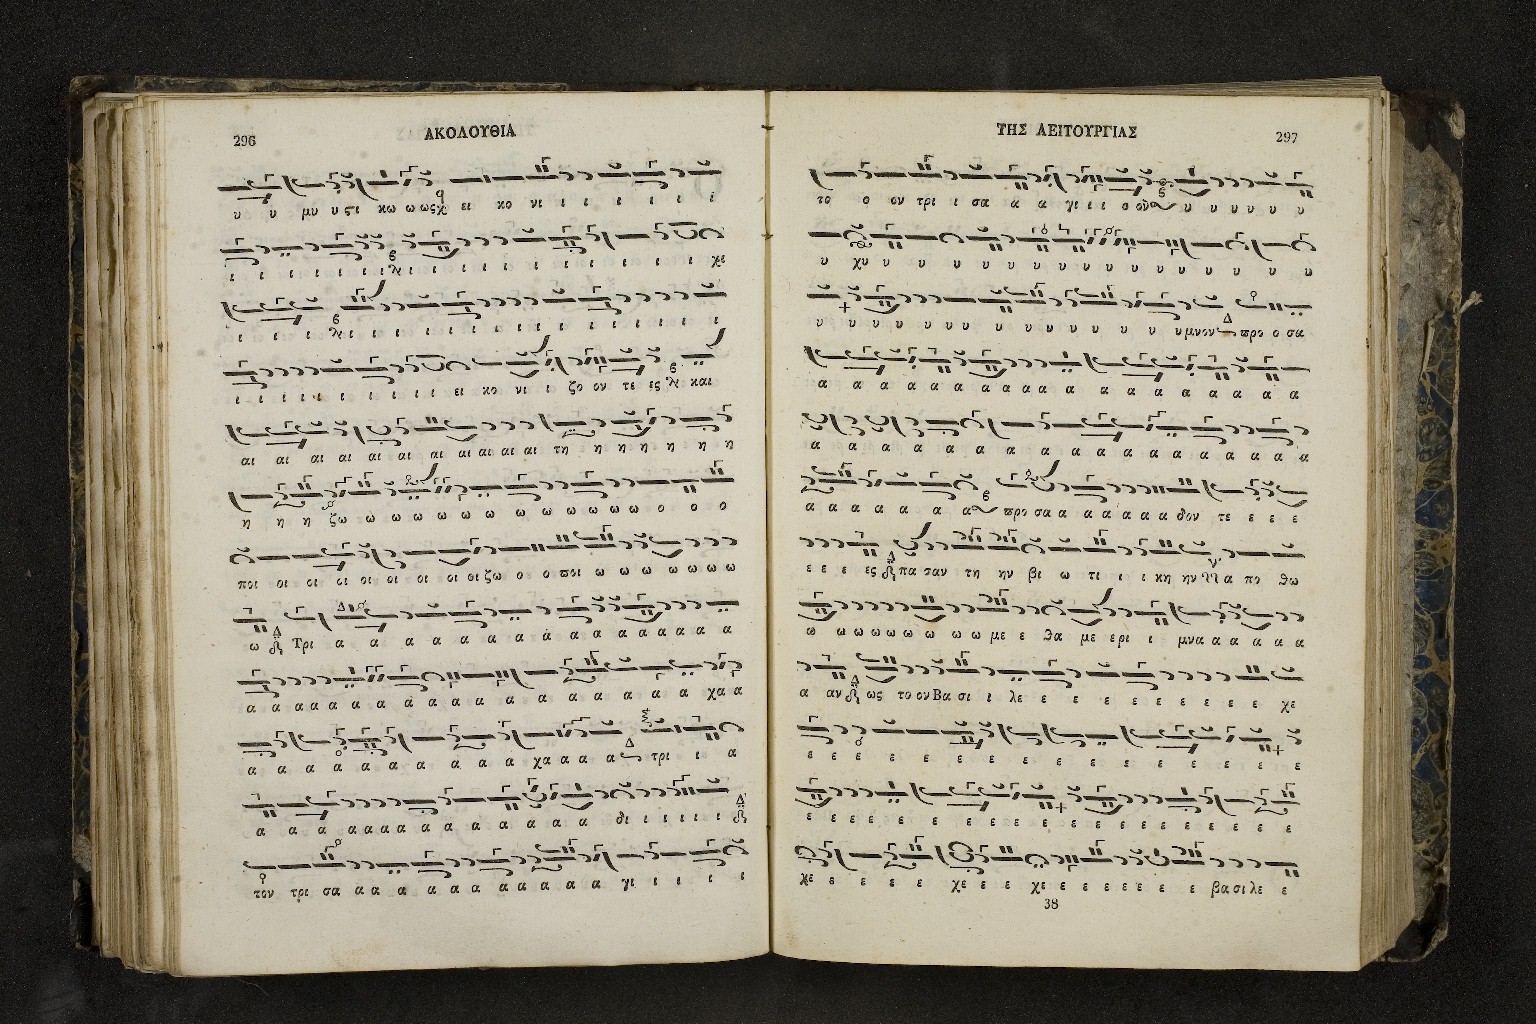 296
ΑΚΟΛΟΥΘΙΑ
υ υ μυ υςι κω ω ως ει κο νι ι ι ι ι ι ι
ι ι ι ι ι ι ι ι ι ι ι ι ι ι ι ι ι χε
ι ι ι ι ι ι ι ι ι ι ι ι ι ι ι ι ι
ι ι ι ι ι ι ι ι ι ι ει κο νι ι ζο ον τε ες και
αι αι αι αι αι αι αι αι αι αι αι τη η η η η η η
η η η ζω ω ω ω ω ω ω ω ω ω ω ω ο ο ο
ποι οι οι οι οι οι οι οι οι ζω ο ο ποι ω ω ω ω ω ω ω
ω Τρι α α α α α α α α α α α α α α α
α α α α α α α α α α α α α α α α α χα α
α α α α α α α α α α χα α α α τρι ι α
α α α α α α α α α α α α α α α δι ι ι ι ι ι
τον τρι σα α α α α α α α α α α α γι ι ι ι ι
ΤΗΣ ΛΕΙΤΟΥΡΓΙΑΣ
297
το ο ον τρι ι σα α α γι ι ι ο ον υ υ υ υ υ υ
υ χυ υ υ υ υ υ υ υ υ υ υ υ υ υ υ υ
υ υ υ υ υ υ υ υ υ υ υ υ υ υ υ υμνον προ ο σα
α α α α α α α α α α α α α α α α
α α α α α α α α α α α α α α α α α
α α α α α α α προ σα α α α α α α δον τε ε ε ε
ε ε ε ες πα σαν τη ην βι ω τι ι ι κη ην α πο θω
ω ω ω ω ω ω ω ω με ε θα με ερι ι μνα α α α α α
α αν ως το ον Βα σι ι λε ε ε ε ε ε ε ε ε χε
ε ε ε ε ε ε ε ε ε ε ε ε ε ε
ε ε ε ε ε ε ε ε ε ε ε ε ε ε ε ε
χε ε ε ε ε χε ε ε χε ε ε ε ε ε ε ε βα σι λε ε
38